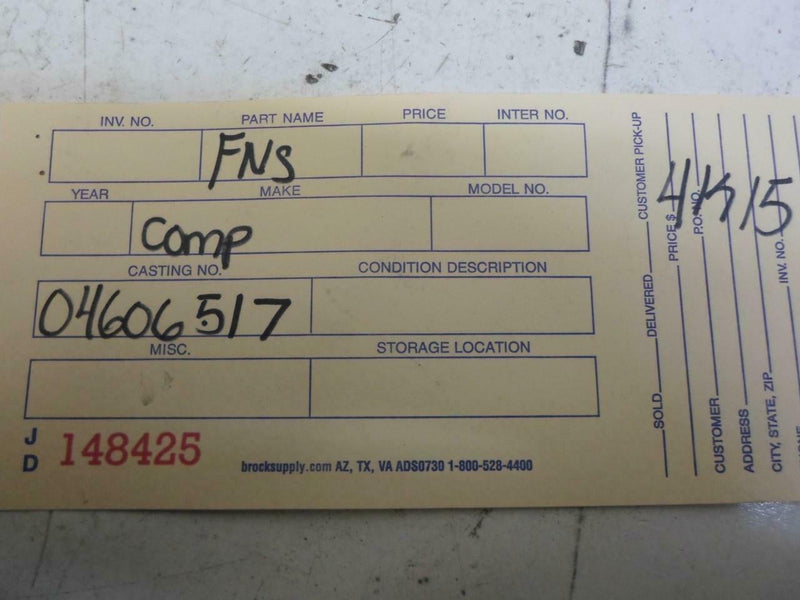 INV. NO. PART NAME PRICE INTER NO.
FNS
YEAR MAKE MODEL NO.
Comp
CASTING NO. CONDITION DESCRIPTION
04606517
MISC. STORAGE LOCATION
J D 148425
brocksupply.com AZ, TX, VA ADS0730 1-800-528-4400
SOLD DELIVERED CUSTOMER PICK-UP
PRICE $
P.O. NO.
CUSTOMER
ADDRESS
CITY, STATE, ZIP INV. NO.